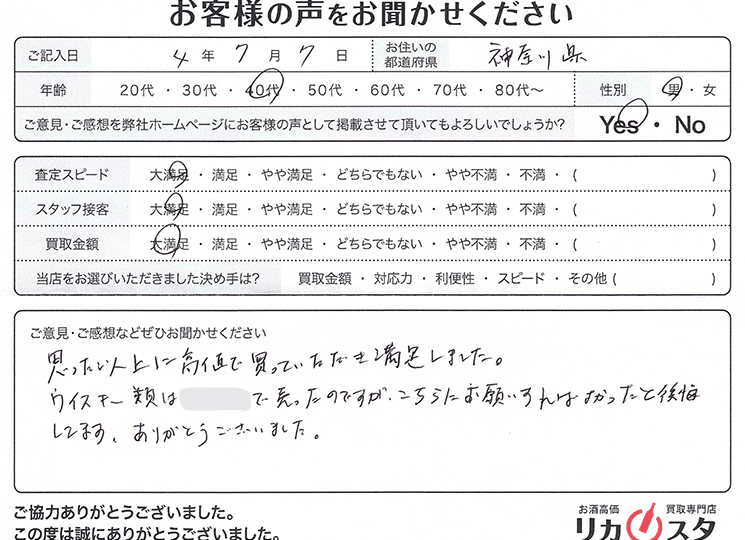 お客様の声をお聞かせください
ご記入日 4 年 7 月 7 日 お住いの都道府県 神奈川県
年齢 20代 ・ 30代 ・ 40代 ・ 50代 ・ 60代 ・ 70代 ・ 80代〜 性別 男 ・ 女
ご意見・ご感想を弊社ホームページにお客様の声として掲載させて頂いてもよろしいでしょうか? Yes ・ No
査定スピード 大満足 ・ 満足 ・ やや満足 ・ どちらでもない ・ やや不満 ・ 不満 ・ ( )
スタッフ接客 大満足 ・ 満足 ・ やや満足 ・ どちらでもない ・ やや不満 ・ 不満 ・ ( )
買取金額 大満足 ・ 満足 ・ やや満足 ・ どちらでもない ・ やや不満 ・ 不満 ・ ( )
当店をお選びいただきました決め手は? 買取金額 ・ 対応力 ・ 利便性 ・ スピード ・ その他 ( )
ご意見・ご感想などぜひお聞かせください
思った以上に高値で買っていただき満足しました。
ウイスキー類は で売ったのですが、こちらにお願いすればよかったと後悔
してます、ありがとうございました。
ご協力ありがとうございました。
この度は誠にありがとうございました。
お酒高価 買取専門店
リカスタ